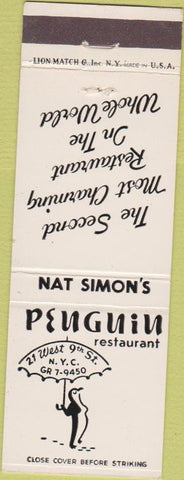 LION MATCH C. Inc. N.Y. MADE IN U.S.A.
The Second
Most Charming
Restaurant
In The
Whole World
NAT SIMON'S
PENGUIN
restaurant
21 West 9th St.
N.Y.C.
GR 7-9450
CLOSE COVER BEFORE STRIKING